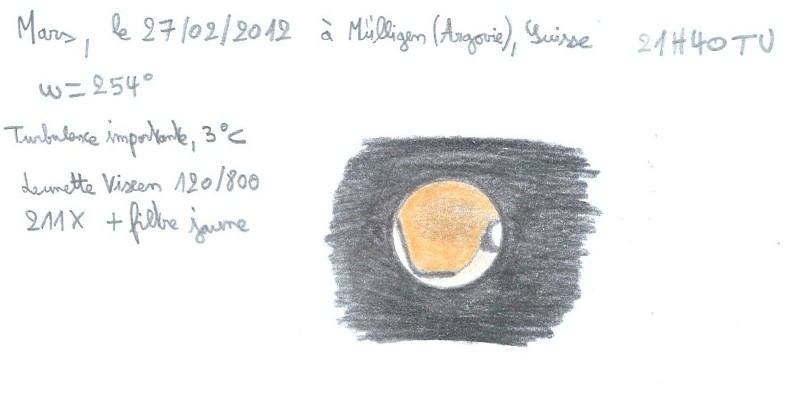 Mars, le 27/02/2012 à Mülligen (Argovie), Suisse 21H40TU
ω=254°
Turbulence importante, 3°C
Lunette Vixen 120/800
211X + filtre jaune